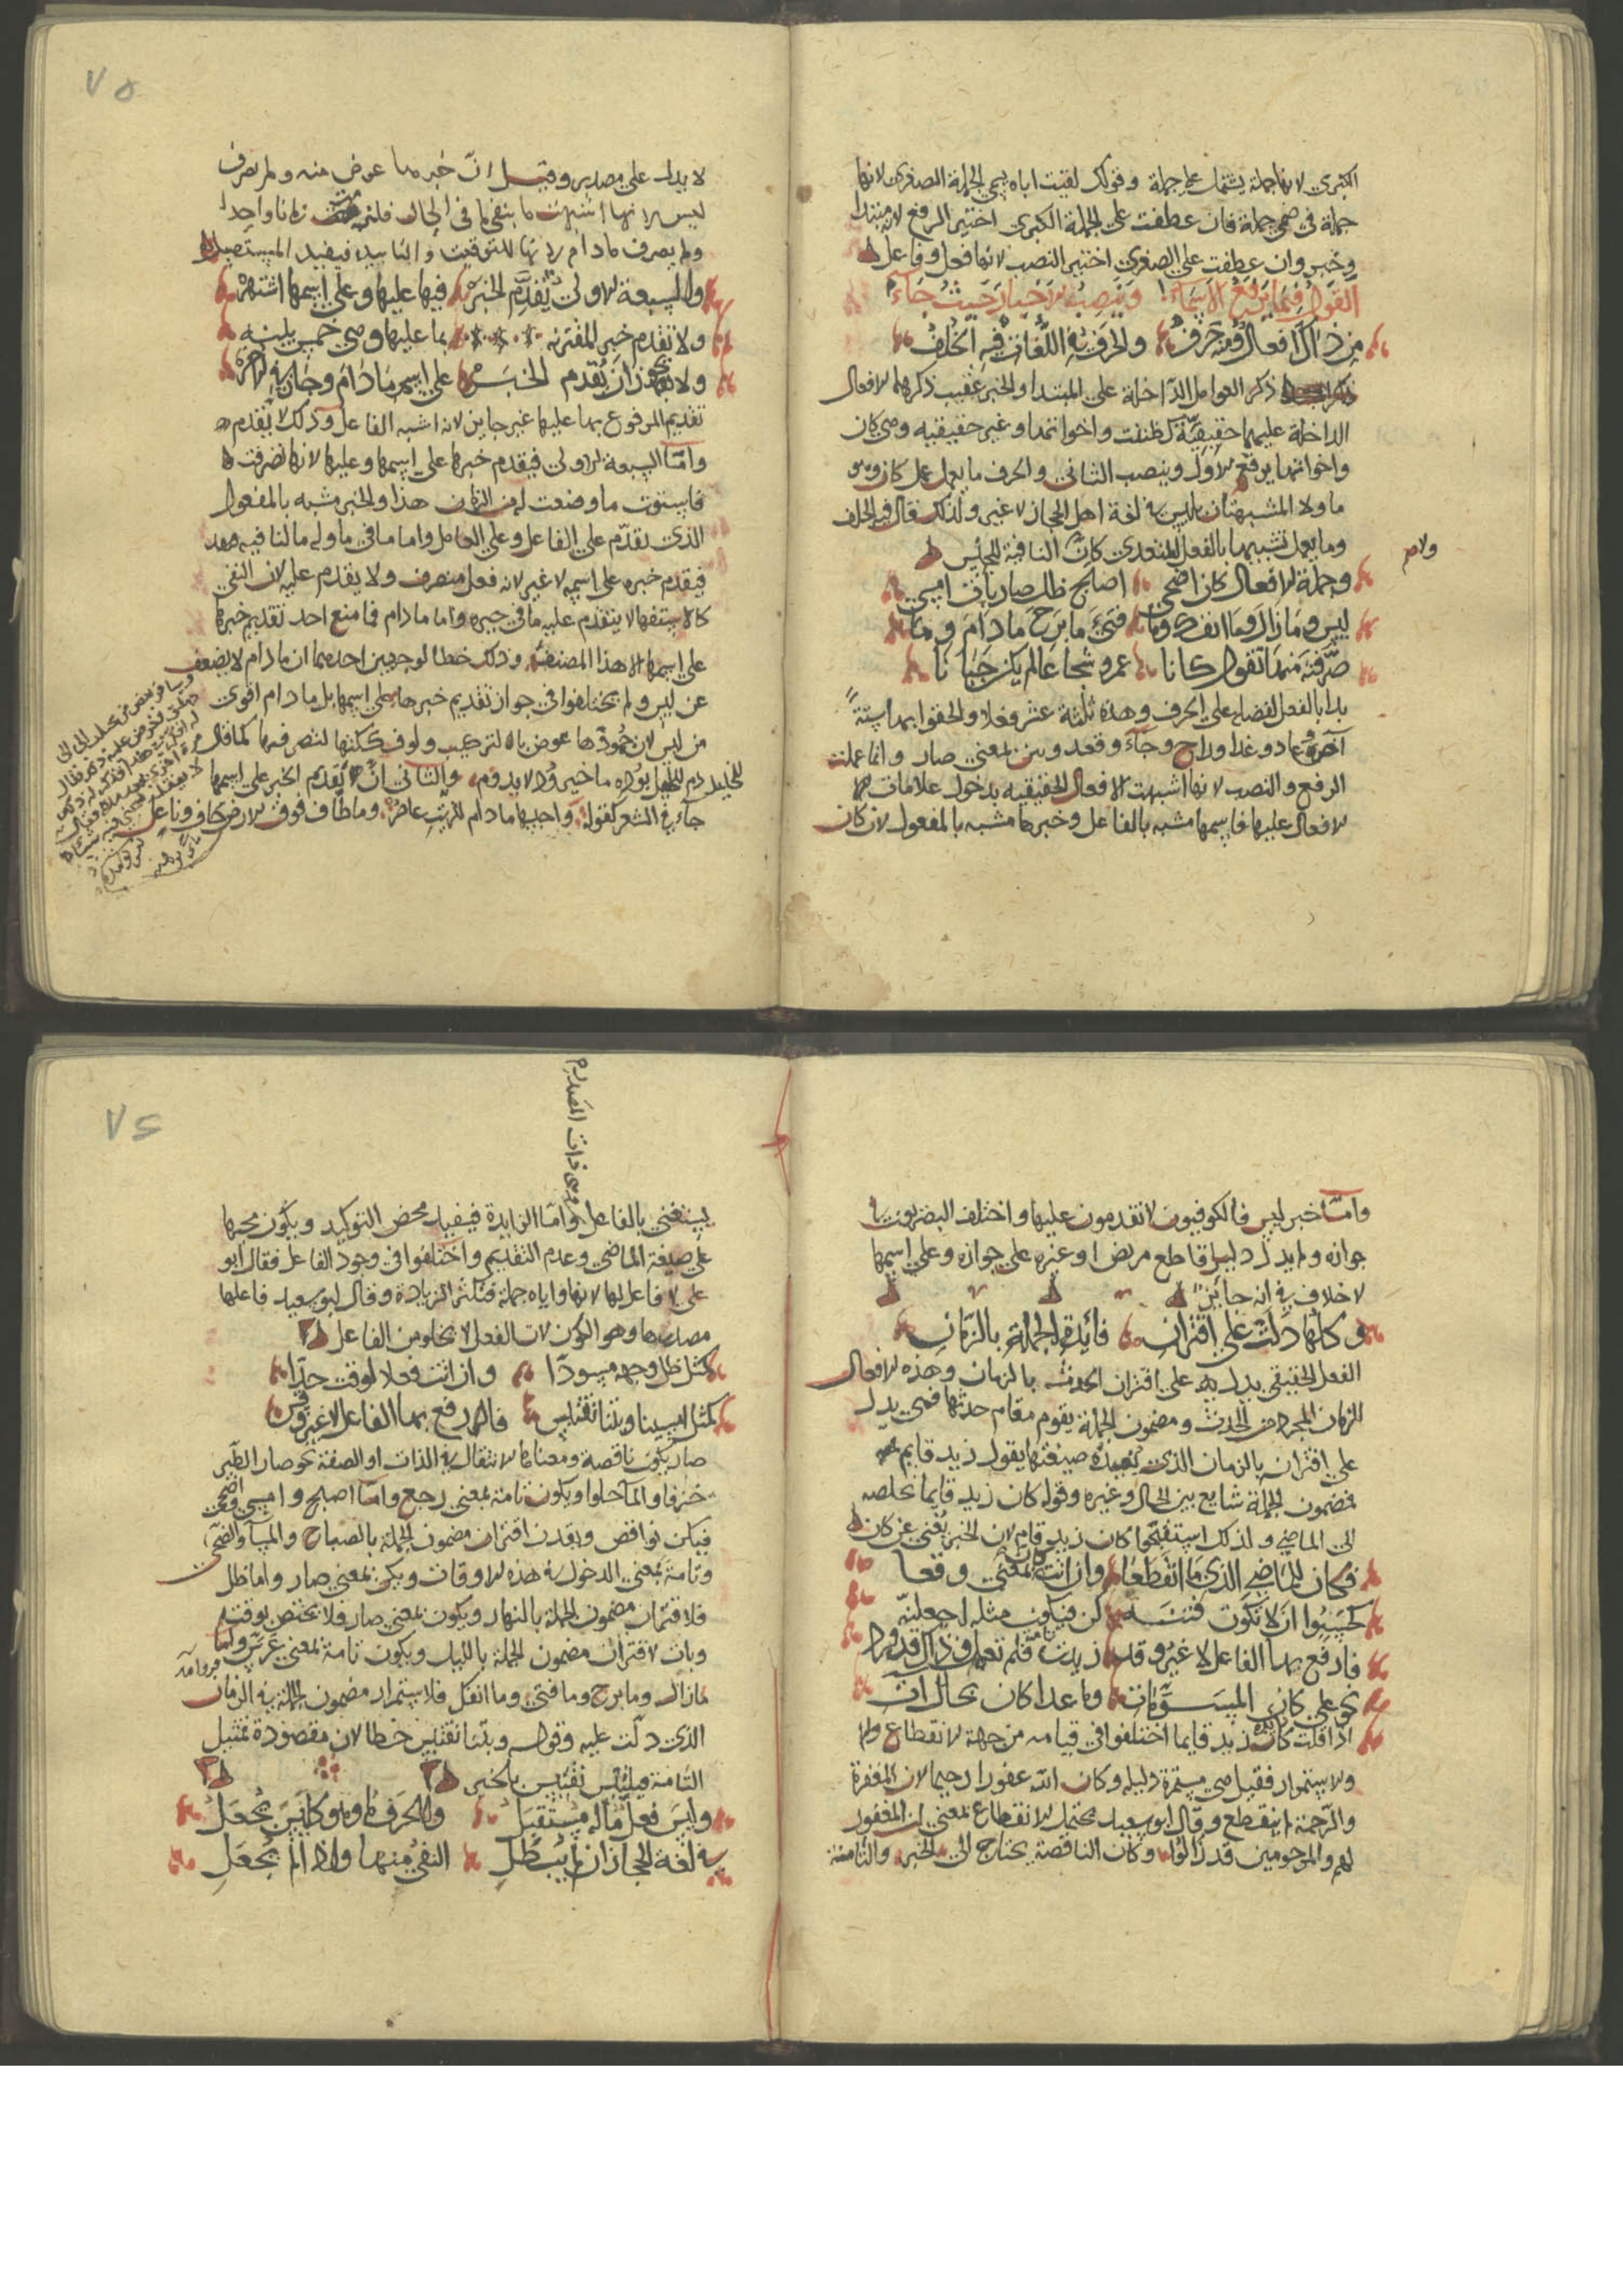 الكبرى لانها جملة يشتمل على جملة وقولك لقيت اباه يسمى الجملة الصغرى لانها
جملة في ضمن جملة فان عطفت على الجملة الكبرى اختير الرفع لانه مبتدا
وخبر وان عطفت على الصغرى اختير النصب لانها فعل وفاعل
القول فيما يرفع الاسماء وينصب الاخبار حيث جاء
من ذاك افعال ومنه حرف والحرف فيه اللغات فيه الخلف
ذكر العوامل الداخلة على المبتدا والخبر عقيب ذكره الافعال
الداخلة عليهما حقيقية كظننت واخواتها وغير حقيقيه وهي كان
واخواتها يرفع الاول وينصب الثاني والحرف ما يعمل عمل كان وهو
ما ولا المشبهتان بليس في لغة اهل الحجاز لا غير ولذلك قال فيه الخلف
وما يعمل تشبيها بالفعل المتعدي كان النافية للجنس
ولام
وجملة الافعال كان اضحى اصبح ظل صار بات امسى
ليس وما زال وما انفك وما فتئ ما برح ما دام وما
صرفته منها تقول كانا عمرو شجاعا لم يكن جبانا
بدا بالفعل لفضله على الحرف وهذه ثلثة عشر فعلا والحقوا بها ستة
اخرى عاد وغدا وراح وجاء وقعد وهن بمعنى صار وانما عملت
الرفع والنصب لانها اشبهت الافعال الحقيقيه بدخول علامات
الافعال عليها فاسمها مشبه بالفاعل وخبرها مشبه بالمفعول لان كان
٧٥
لا يدل على مصدر وقيل ان خبرها عوض منه ولم يصرف
ليس لانها اشبهت ما بنفيها في الحال فلزمت زمانا واحدا
ولم يصرف ما دام لانها للتوقيت والتابيد فيفيد المستقبل
والسبعة الاولى يقدم الخبر فيها عليها وعلى اسمها اشتهر
ولا تقدم خبر المقترنه بما عليها وهي خمس بينه
ولا يجوز ان يقدم الخبر على اسم ما دام وجاز في الاخر
تقديم المرفوع بها عليها غير جايز لانه اشبه الفاعل وذلك لا يقدم
واما السبعة الاولى فيقدم خبرها على اسمها وعليها لانها تصرفت
فاستوت ما وضعت له من الزمان هذا والخبر مشبه بالمفعول
الذي يقدم على الفاعل وعلى العامل واما ما في اوله ما النافيه
فيقدم خبره على اسمه لا غير لانه فعل متصرف ولا يقدم عليه لان النفي
كالاستفهام لا يتقدم عليه ما في حيزه واما ما دام فما منع احد تقديم خبرها
على اسمها الا هذا المصنف وذلك خطا لوجهين احدهما ان ما دام لا يضعف
عن ليس ولم يختلفوا في جواز تقديم خبرها على اسمها بل ما دام اقوى
والثاني ان يقدم الخبر على اسمها
جاء في الشعر كقوله واحبها ما دام للزيت عاصر وما طاف فوق الارض حاف وناعل
واما خبر ليس فالكوفيون لا تقدمون عليها واختلف البصريون في
جوازه ولم يدل دليل قاطع من نص او غيره على جوازه وعلى اسمها
لا خلاف في انه جايز
وكلها دلت على اقتران فائدة الجملة بالزمان
الفعل الحقيقي يدل به على اقتران الحدث بالزمان وهذه الافعال
للزمان المجرد من الحدث ومضمون الجملة يقوم مقام حدثها فهي يدل
على اقترانه بالزمان الذي يفيده صيغتها يقول زيد قايم
فمضمون الجملة شايع بين الحال وغيره وقوله كان زيد قايما تخلصه
الى الماضي ولذلك استقبحوا كان زيد قام لان الخبر يغني عن كان
فكان للماضي الذي ما انقطعا وان اتت بمعنى وقعا
كحسبوا ان لا تكون فتنة كن فيكون مثله جعلته
فارفع بها الفاعل لا غير وقد زيدت فلم تعمل وذاك قد ورد
نحو على كان المسومات وما عدا كان بحال ات
اذا قلت كان زيد قايما اختلفوا في قيامه من جهة الانقطاع
والاستمرار فقيل هي مستمرة دليله وكان الله غفورا رحيما لان المغفرة
والرحمة لم ينقطع وقال ابو سعيد محتمل الانقطاع بمعنى ان المغفور
لهم والمرحومين قد زالوا وكان الناقصة يحتاج الى الخبر والتامة
٧٦
يستغني بالفاعل واما الزايدة فيفيد محض التوكيد ويكون مجيها
على صيغة الماضي وعدم التقديم واختلفوا في وجود الفاعل فقال ابو
على لا فاعل لها لانها واياه جملة فتكثر الزيادة وقال ابو سعيد فاعلها
مصدرها وهو الكون لان الفعل لا يخلو من الفاعل
كمثل ظل وجهه مسودا وان اتت فعلا لوقت حدا
كمثل امسينا وبتنا نقتبس فالمرفوع بها الفاعل لا غير وقس
صار يكون ناقصة ومعناها الانتقال في الذات او الصفة نحو صار الطين
خزفا والماء حلوا ويكون تامة بمعنى رجع واما اصبح وامسى واضحى
فيكن نواقص ويفدن اقتران مضمون الجملة بالصباح والمسا والضحى
وتامة بمعنى الدخول في هذه الاوقات ويكن بمعنى صار واما ظل
فلاقتران مضمون الجملة بالنهار ويكون بمعنى صار فلا يختص بوقته
وبات لاقتران مضمون الجملة بالليل ويكون تامة بمعنى عرس واما
مازال وما برح وما فتئ وما انفك فلاستمرار مضمون الجملة في الزمان
الذي دلت عليه وقوله وبتنا نقتبس خطا لان مقصوده تمثيل
التامة فيلتبس نقتبس بالخبر
وليس فعل ماله مستقبل والحرف ما وهو كليس يجعل
في لغة الحجاز ان لم يبطل النفي منها واذا لم يجعل